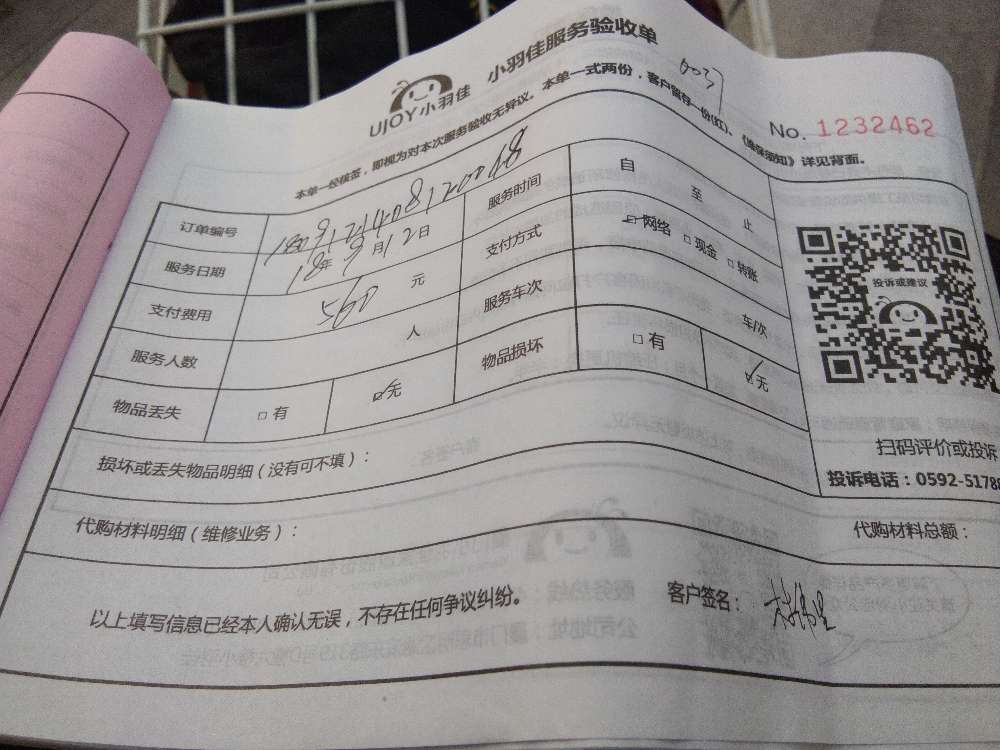 UJOY小羽佳 小羽佳服务验收单
0037
No. 1232462
本单一经核签，即视为对本次服务验收无异议。本单一式两份，客户留存一份(红)、《维保须知》详见背面。
订单编号 服务时间 自 至 止
服务日期 18年9月12日 支付方式 网络 □现金 □转账
支付费用 560 元 服务车次 车/次
服务人数 人 物品损坏 □有 ☑无
物品丢失 □有 ☑无
投诉或建议
扫码评价或投诉
投诉电话：0592-5178
损坏或丢失物品明细（没有可不填）：
代购材料明细（维修业务）： 代购材料总额：
以上填写信息已经本人确认无误，不存在任何争议纠纷。 客户签名：